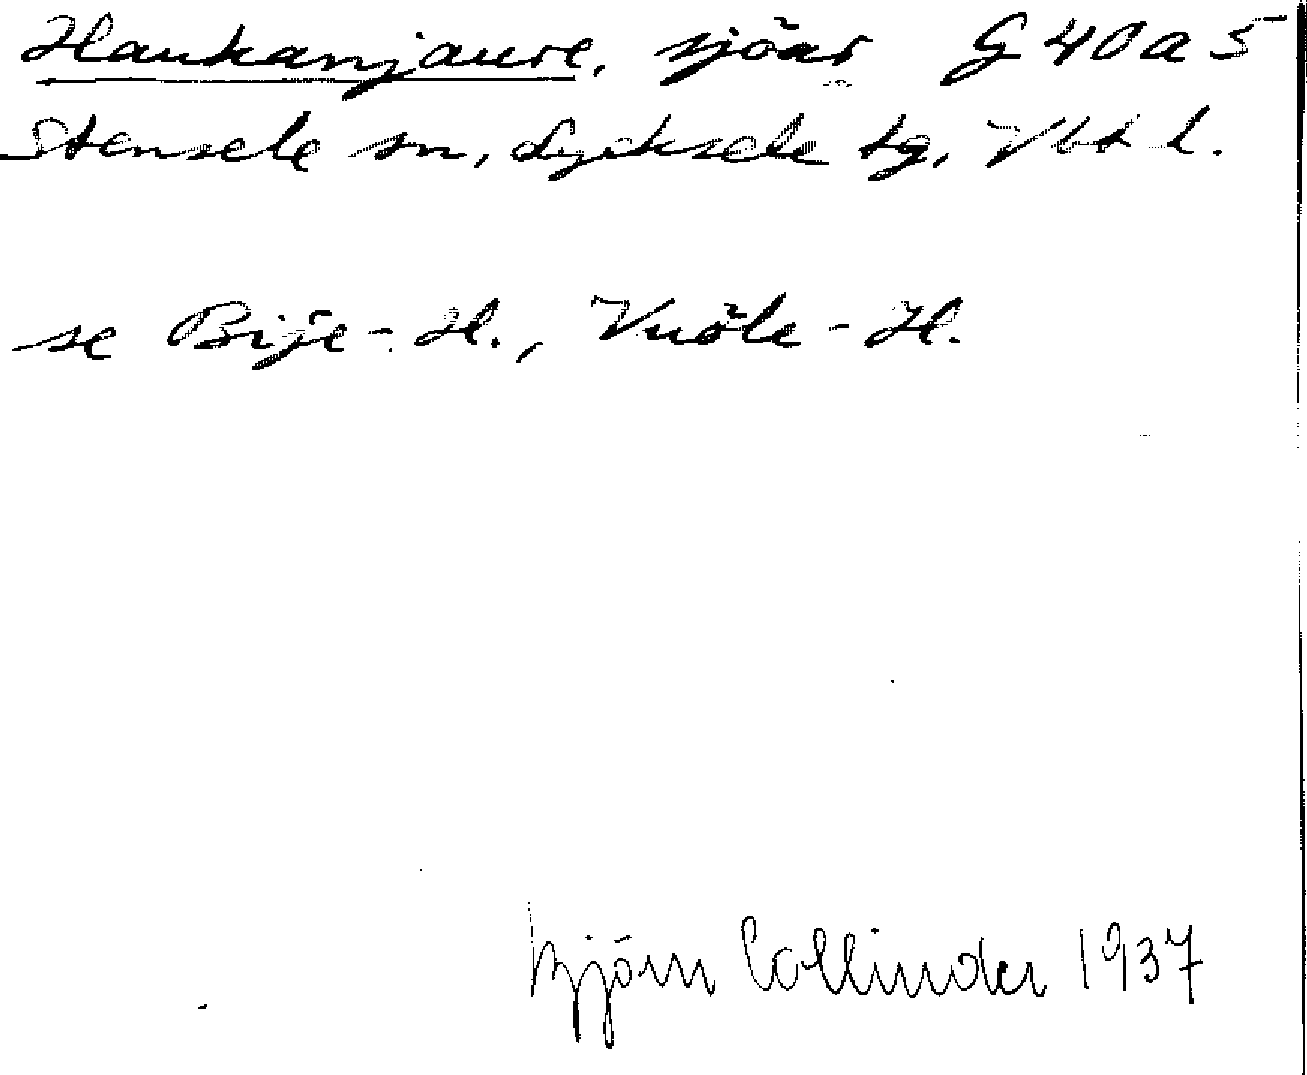 Haukanjaure, sjöar G 40 a 5
Stensele sn, Lycksele tg, Vbt l.
se Bije-H., Vuöle-H.
Björn Collinder 1937